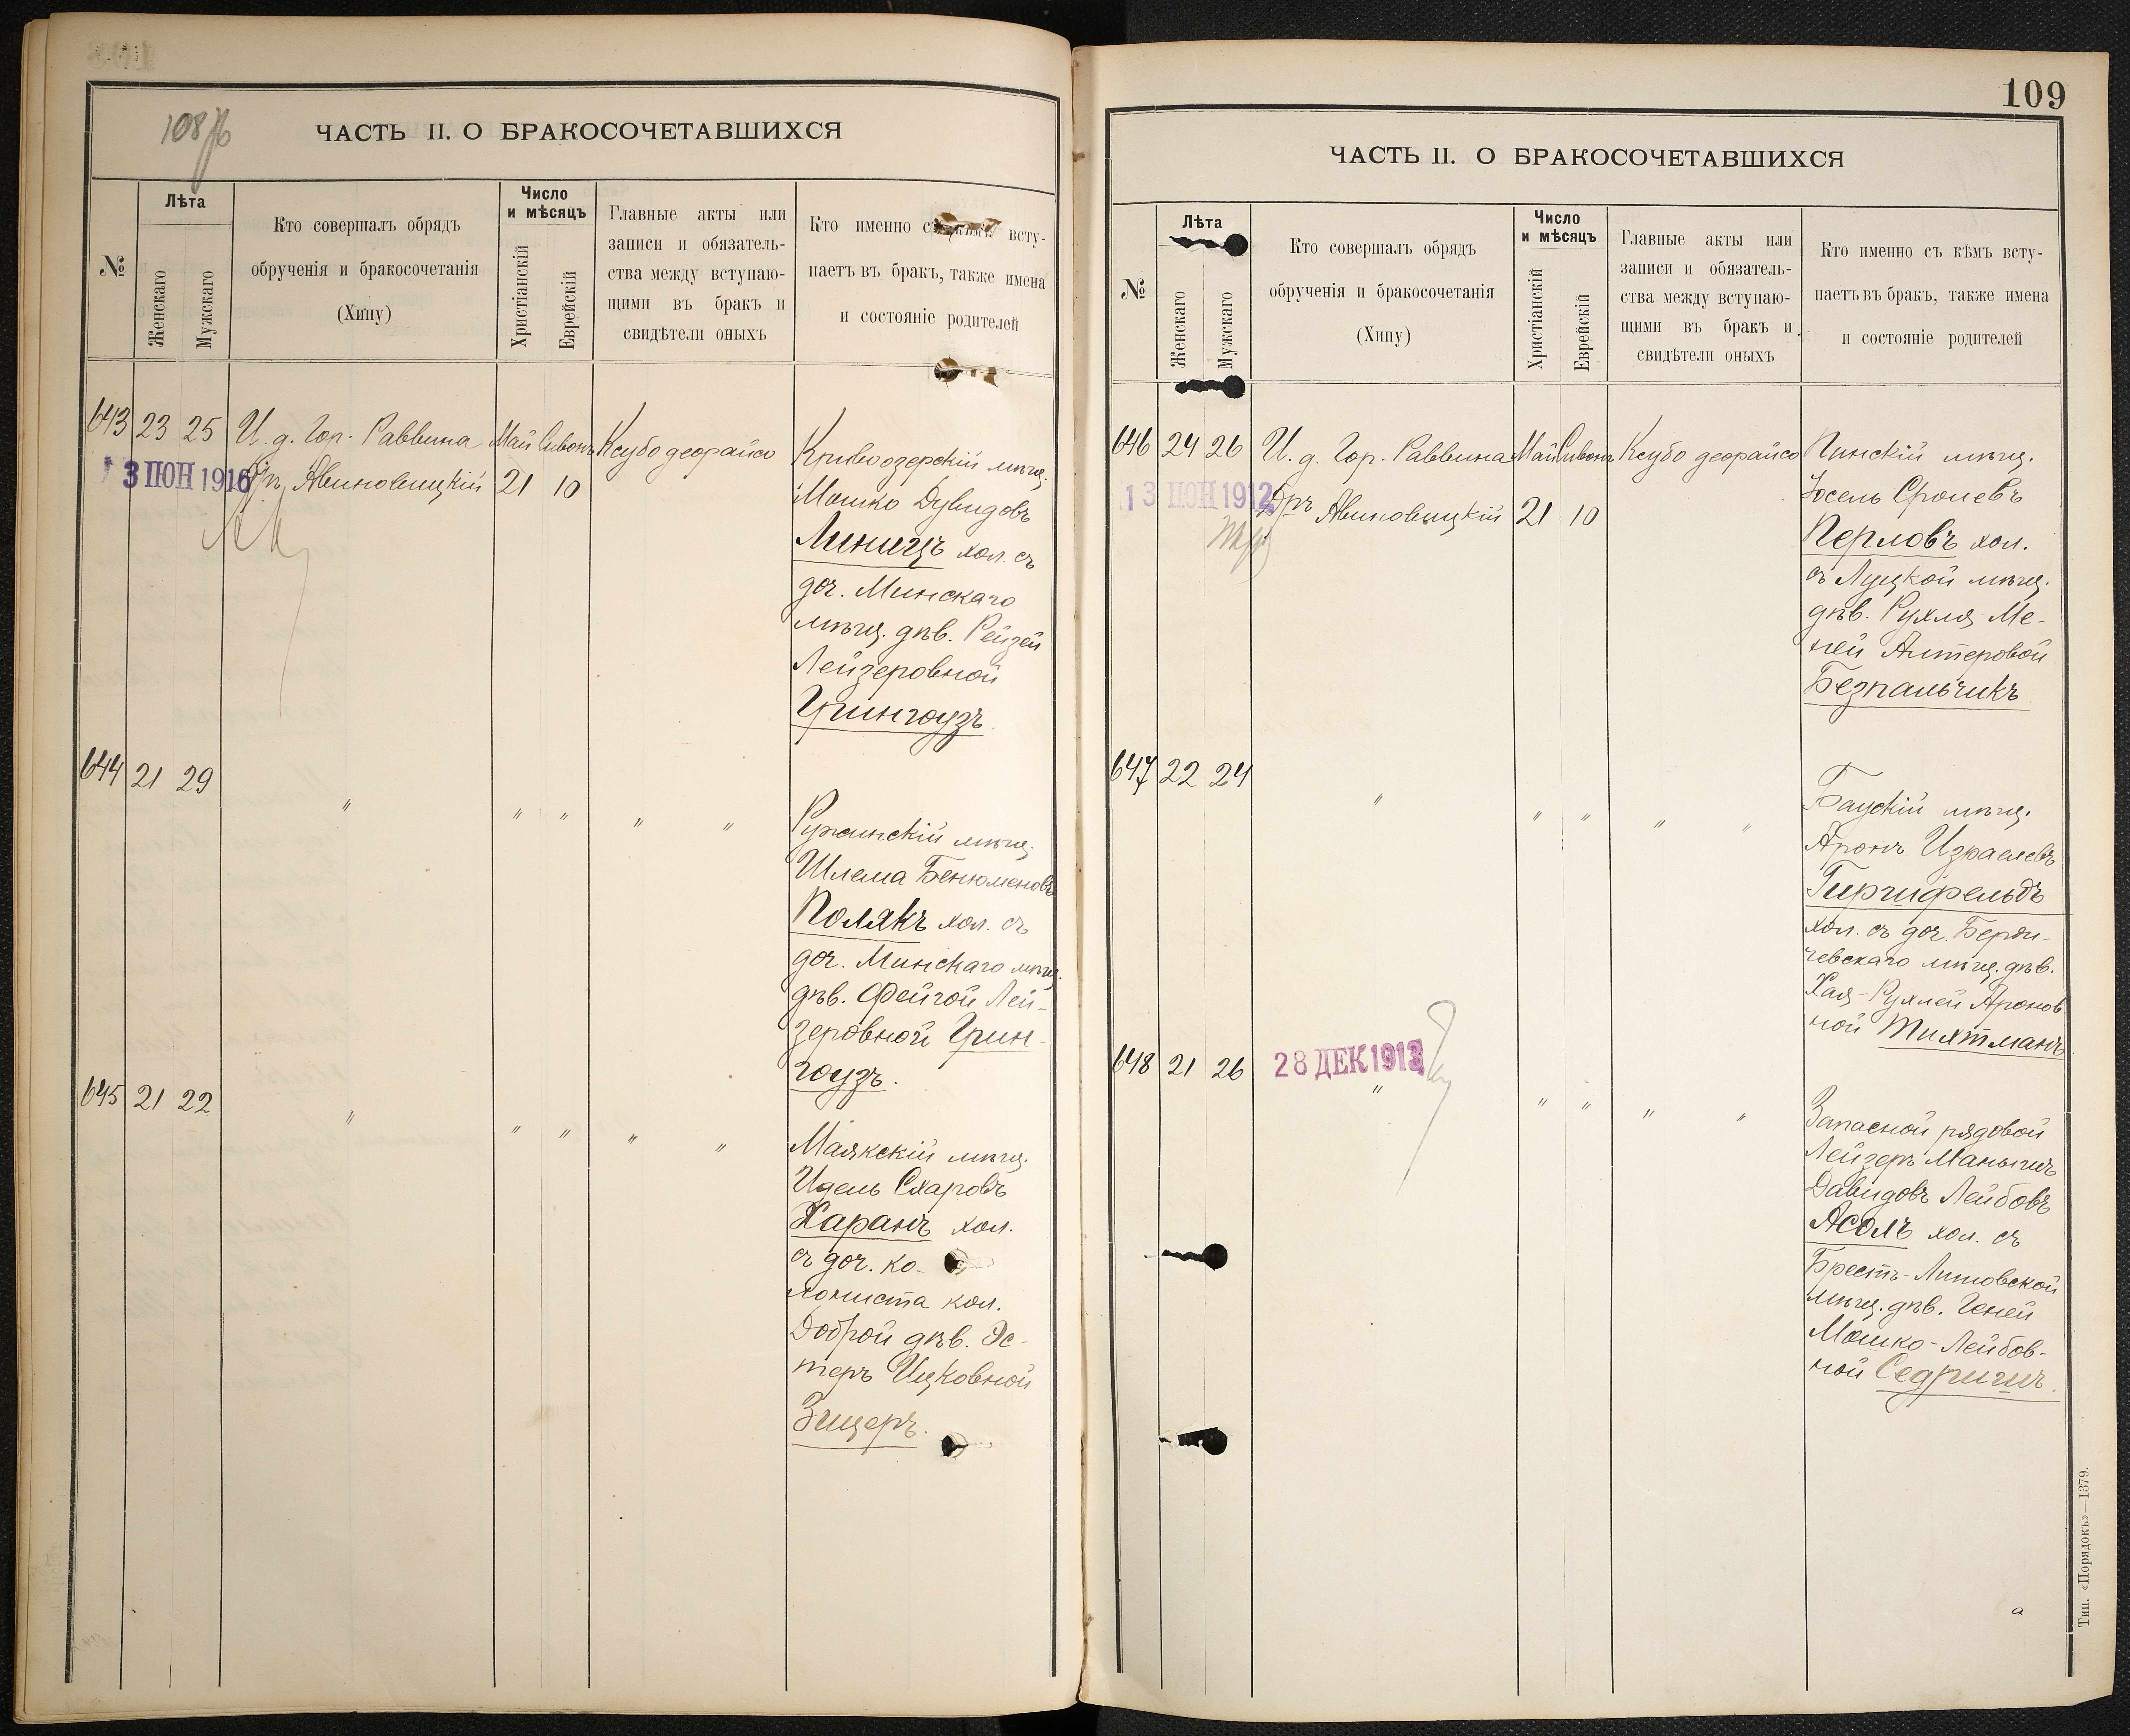 108 об
ЧАСТЬ II. О БРАКОСОЧЕТАВШИХСЯ
№
Лѣта
Женскаго
Мужскаго
Кто совершалъ обрядъ
обрученія и бракосочетанія
(Хипу)
Число
и мѣсяцъ
Христіанскій
Еврейскій
Главные акты или
записи и обязатель-
ства между вступаю-
щими въ бракъ и
свидѣтели оныхъ
Кто именно съ кѣмъ всту-
паетъ въ бракъ, также имена
и состояніе родителей
643 23 25 И. д. Гор. Раввина Май Сивонъ Ксубо деорайсо
3 ІЮН 1916
Д-ръ Авиновицкій 21 10
Кривоозерскій мѣщ.
Мошко Дувидовъ
Линицъ хол. съ
доч. Минскаго
мѣщ. дѣв. Рейзей
Лейзеровной
Грингоузъ.
644 21 29 " " " " "
Ружинскій мѣщ.
Шлема Бенюменовъ
Полякъ хол. съ
доч. Минскаго мѣщ.
дѣв. Фейгой Лей-
зеровной Грин-
гоузъ.
645 21 22 " " " " "
Маякскій мѣщ.
Идель Схаровъ
Харанъ хол.
съ доч. ко-
лониста кол.
Доброй дѣв. Эс-
теръ Ицковной
Зицеръ.
109
ЧАСТЬ II. О БРАКОСОЧЕТАВШИХСЯ
№
Лѣта
Женскаго
Мужскаго
Кто совершалъ обрядъ
обрученія и бракосочетанія
(Хипу)
Число
и мѣсяцъ
Христіанскій
Еврейскій
Главные акты или
записи и обязатель-
ства между вступаю-
щими въ бракъ и
свидѣтели оныхъ
Кто именно съ кѣмъ всту-
паетъ въ бракъ, также имена
и состояніе родителей
646 24 26 И. д. Гор. Раввина Май Сивонъ Ксубо деорайсо
13 ІЮН 1912
Д-ръ Авиновицкій 21 10
Пинскій мѣщ.
Іосель Сролевъ
Перловъ хол.
съ Луцкой мѣщ.
дѣв. Рухля-Ме-
ней Алтеровой
Безпальчикъ
647 22 24 " " " " "
Баускій мѣщ.
Аронъ Израелевъ
Гиршфельдъ
хол. съ доч. Берди-
чевскаго мѣщ. дѣв.
Хая-Рухлей Аронов-
ной Тихтманъ.
648 21 26 28 ДЕК 1913
" " " " "
Запасной рядовой
Лейзеръ
Давидовъ Лейбовъ
Асолъ хол. съ
Брестъ-Литовской
мѣщ. дѣв. Геней
Мошко-Лейбов-
ной Седричъ.
Тип. «Порядокъ»—1379.